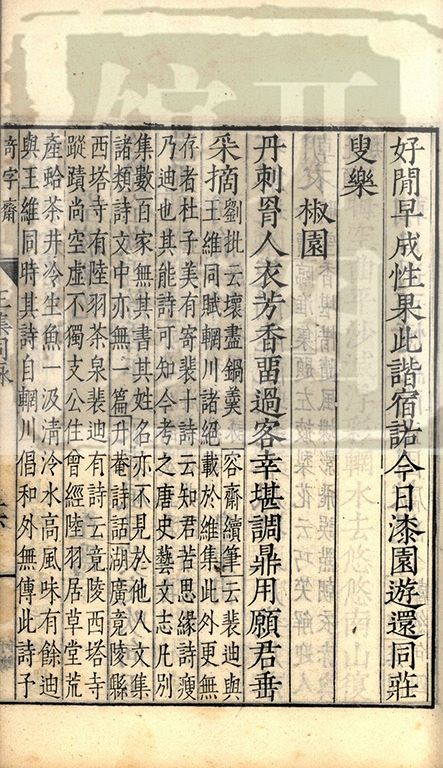 好閒早成性果此諧宿諾今日漆園遊還同莊
叟樂
椒園
丹刺罥人衣芳香畱過客幸堪調鼎用願君垂
采摘
劉批云壞盡鍋羹 容齋續筆云裴迪與
王維同賦輞川諸絕載於維集此外更無
存者杜子美有寄裴十詩云知君苦思緣詩瘦
乃迪也其能詩可知今考之唐史藝文志凡別
集數百家無其書其姓名亦不見於他人文集
諸類詩文中亦無一篇 升菴詩話湖廣竟陵縣
西塔寺有陸羽茶泉裴迪有詩云竟陵西塔寺
蹤蹟尚空虛不獨支公住曾經陸羽居草堂荒
產蛤茶井冷生魚一汲清泠水高風味有餘迪
與王維同時其詩自輞川倡和外無傳此詩予
奇字齋